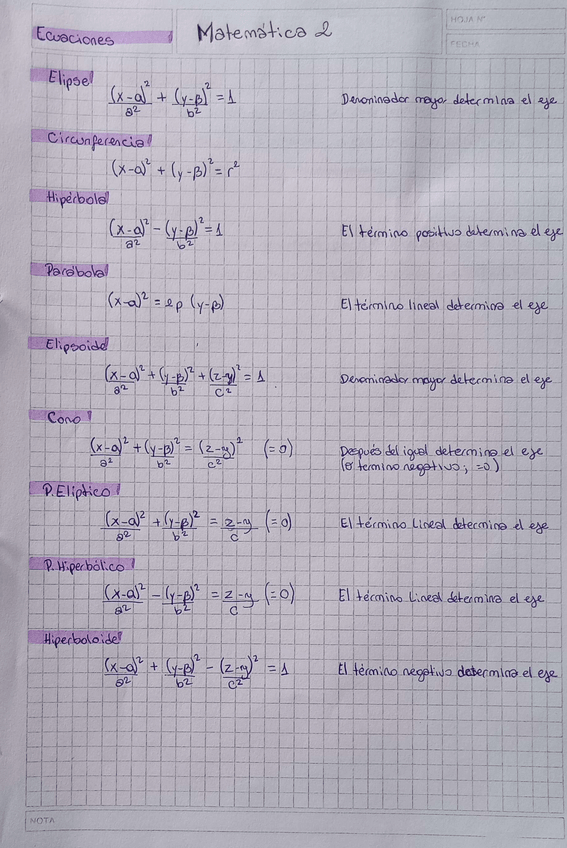 Ecuaciones
Matemática 2
HOJA N°
FECHA
Elipse
(x-α)²/a² + (y-β)²/b² = 1 Denominador mayor determina el eje
Circunferencia
(x-α)² + (y-β)² = r²
Hipérbola
(x-α)²/a² - (y-β)²/b² = 1 El término positivo determina el eje
Parábola
(x-α)² = 2p (y-β) El término lineal determina el eje
Elipsoide
(x-α)²/a² + (y-β)²/b² + (z-γ)²/c² = 1 Denominador mayor determina el eje
Cono
(x-α)²/a² + (y-β)²/b² = (z-γ)²/c² (=0) Después del igual determina el eje
(o termino negativo; =0)
P. Elíptico
(x-α)²/a² + (y-β)²/b² = z-γ/c (=0) El término Lineal determina el eje
P. Hiperbólico
(x-α)²/a² - (y-β)²/b² = z-γ/c (=0) El término Lineal determina el eje
Hiperboloide
(x-α)²/a² + (y-β)²/b² - (z-γ)²/c² = 1 El término negativo determina el eje
NOTA